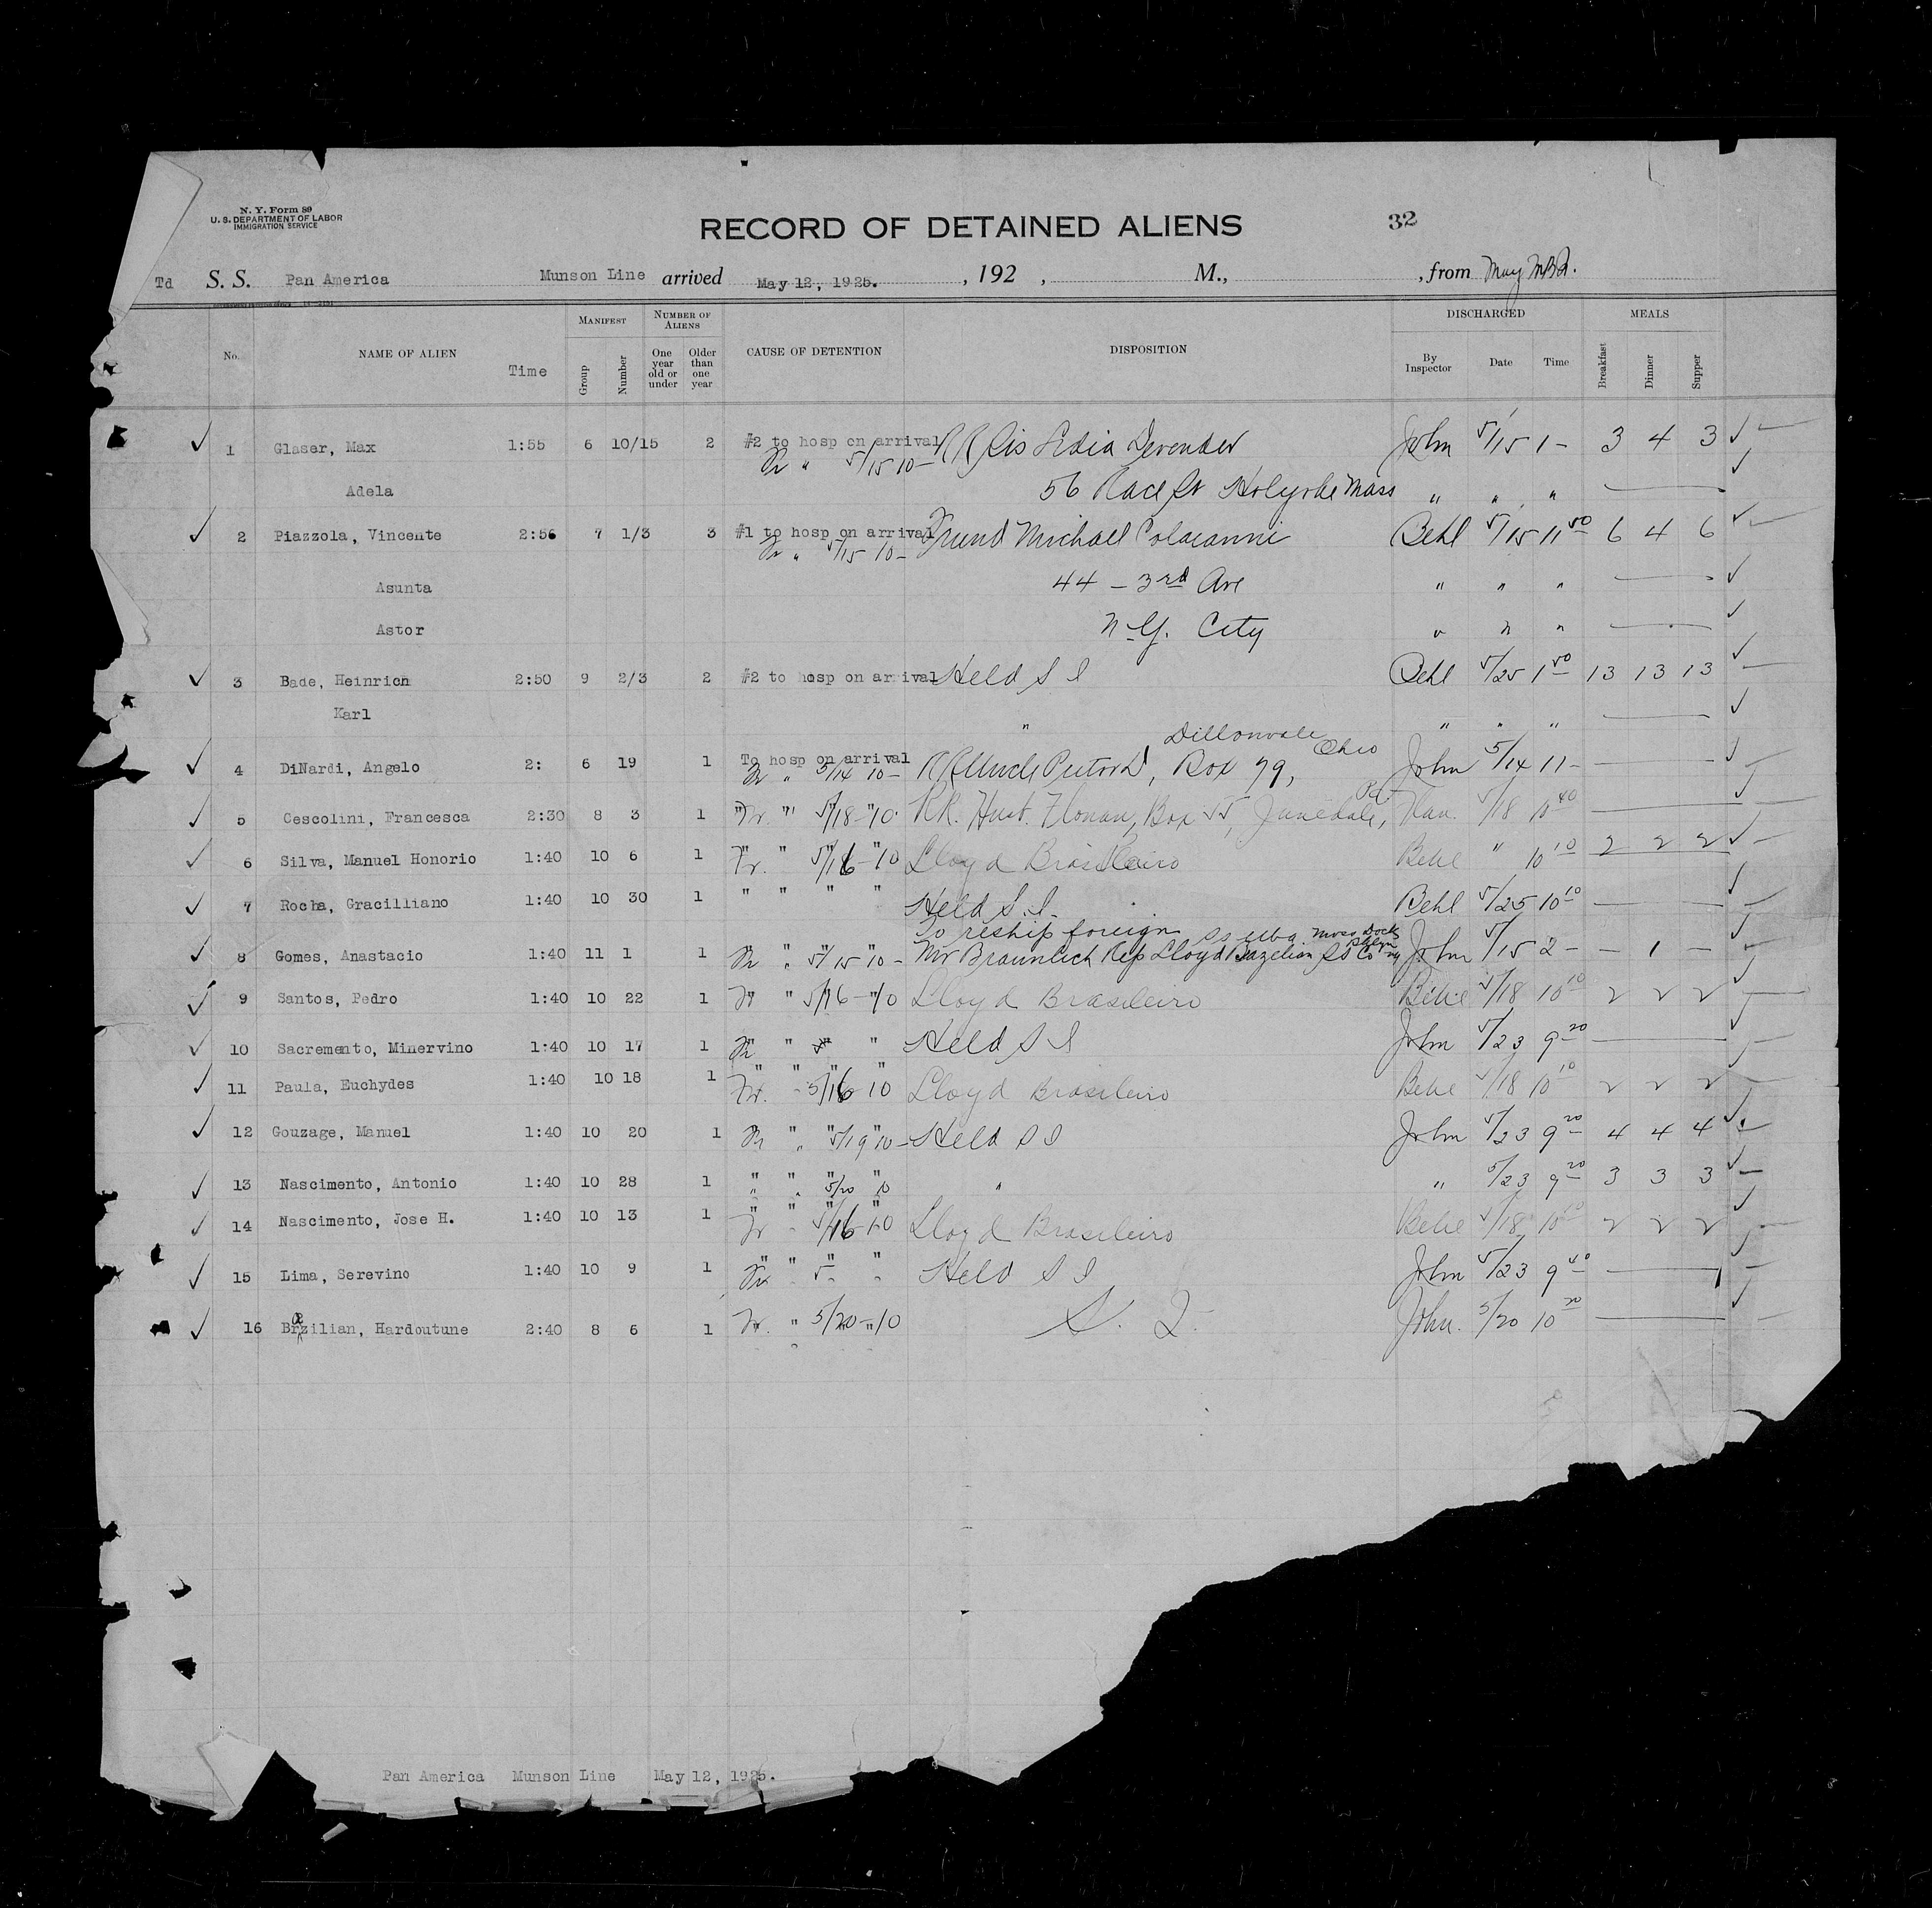 N. Y. Form 89
U. S. DEPARTMENT OF LABOR
IMMIGRATION SERVICE
RECORD OF DETAINED ALIENS
32
Td S. S. Pan America Munson Line arrived May 12, 1925. , 192 , M., , from
No. NAME OF ALIEN Time MANIFEST Group Number NUMBER OF ALIENS One year old or under Older than one year CAUSE OF DETENTION DISPOSITION DISCHARGED By Inspector Date Time MEALS Breakfast Dinner Supper
1 Glaser, Max 1:55 6 10/15 2 #2 to hosp on arrival John 5/15 1- 3 4 3
" 5/15 10-
Adela 56 Race St Holyoke Mass " " "
2 Piazzola, Vincente 2:56 7 1/3 3 #1 to hosp on arrival Friend Michael Colaianni Behl 5/15 11 50 6 4 6
" 5/15 10-
Asunta 44 - 3rd Ave " " "
Astor N.Y. City " " "
3 Bade, Heinrich 2:50 9 2/3 2 #2 to hosp on arrival Held S I Behl 5/25 1 50 13 13 13
Karl " " " "
Dillonvale Ohio
4 DiNardi, Angelo 2: 6 19 1 To hosp on arrival Box 79, John 5/14 11-
" 5/14 10-
5 Cescolini, Francesca 2:30 8 3 1 " " 5/18-10 RR. Husb. Box 55, Junedale, Pa 5/18 10 40
6 Silva, Manuel Honorio 1:40 10 6 1 " 5/16-10 Lloyd Brasileiro Behl " 10 10 2 2 2
7 Rocha, Gracilliano 1:40 10 30 1 " " " " Held S.I. Behl 5/25 10 10
To reship foreign
8 Gomes, Anastacio 1:40 11 1 1 " " 5/15 10- Mr Braunlich Rep Lloyd Brazelian SS Co John 5/15 2- - 1 -
9 Santos, Pedro 1:40 10 22 1 " 5/16-10 Lloyd Brasileiro Behl 5/18 10 10 2 2 2
10 Sacremento, Minervino 1:40 10 17 1 " " " " Held S I John 5/23 9 20
11 Paula, Euchydes 1:40 10 18 1 " " 5/16 10 Lloyd Brasileiro Behl 5/18 10 10 2 2 2
12 Gouzage, Manuel 1:40 10 20 1 " " 5/19 10- Held S I John 5/23 9 20 4 4 4
13 Nascimento, Antonio 1:40 10 28 1 " " 5/20 10 " " 5/23 9 20 3 3 3
14 Nascimento, Jose H. 1:40 10 13 1 " " 5/16-10 Lloyd Brasileiro Behl 5/18 10 10 2 2 2
15 Lima, Serevino 1:40 10 9 1 " " " " Held S I John 5/23 9 40
16 Brazilian, Hardoutune 2:40 8 6 1 " 5/20-10 S. I. John. 5/20 10 20
Pan America Munson Line May 12, 1925.